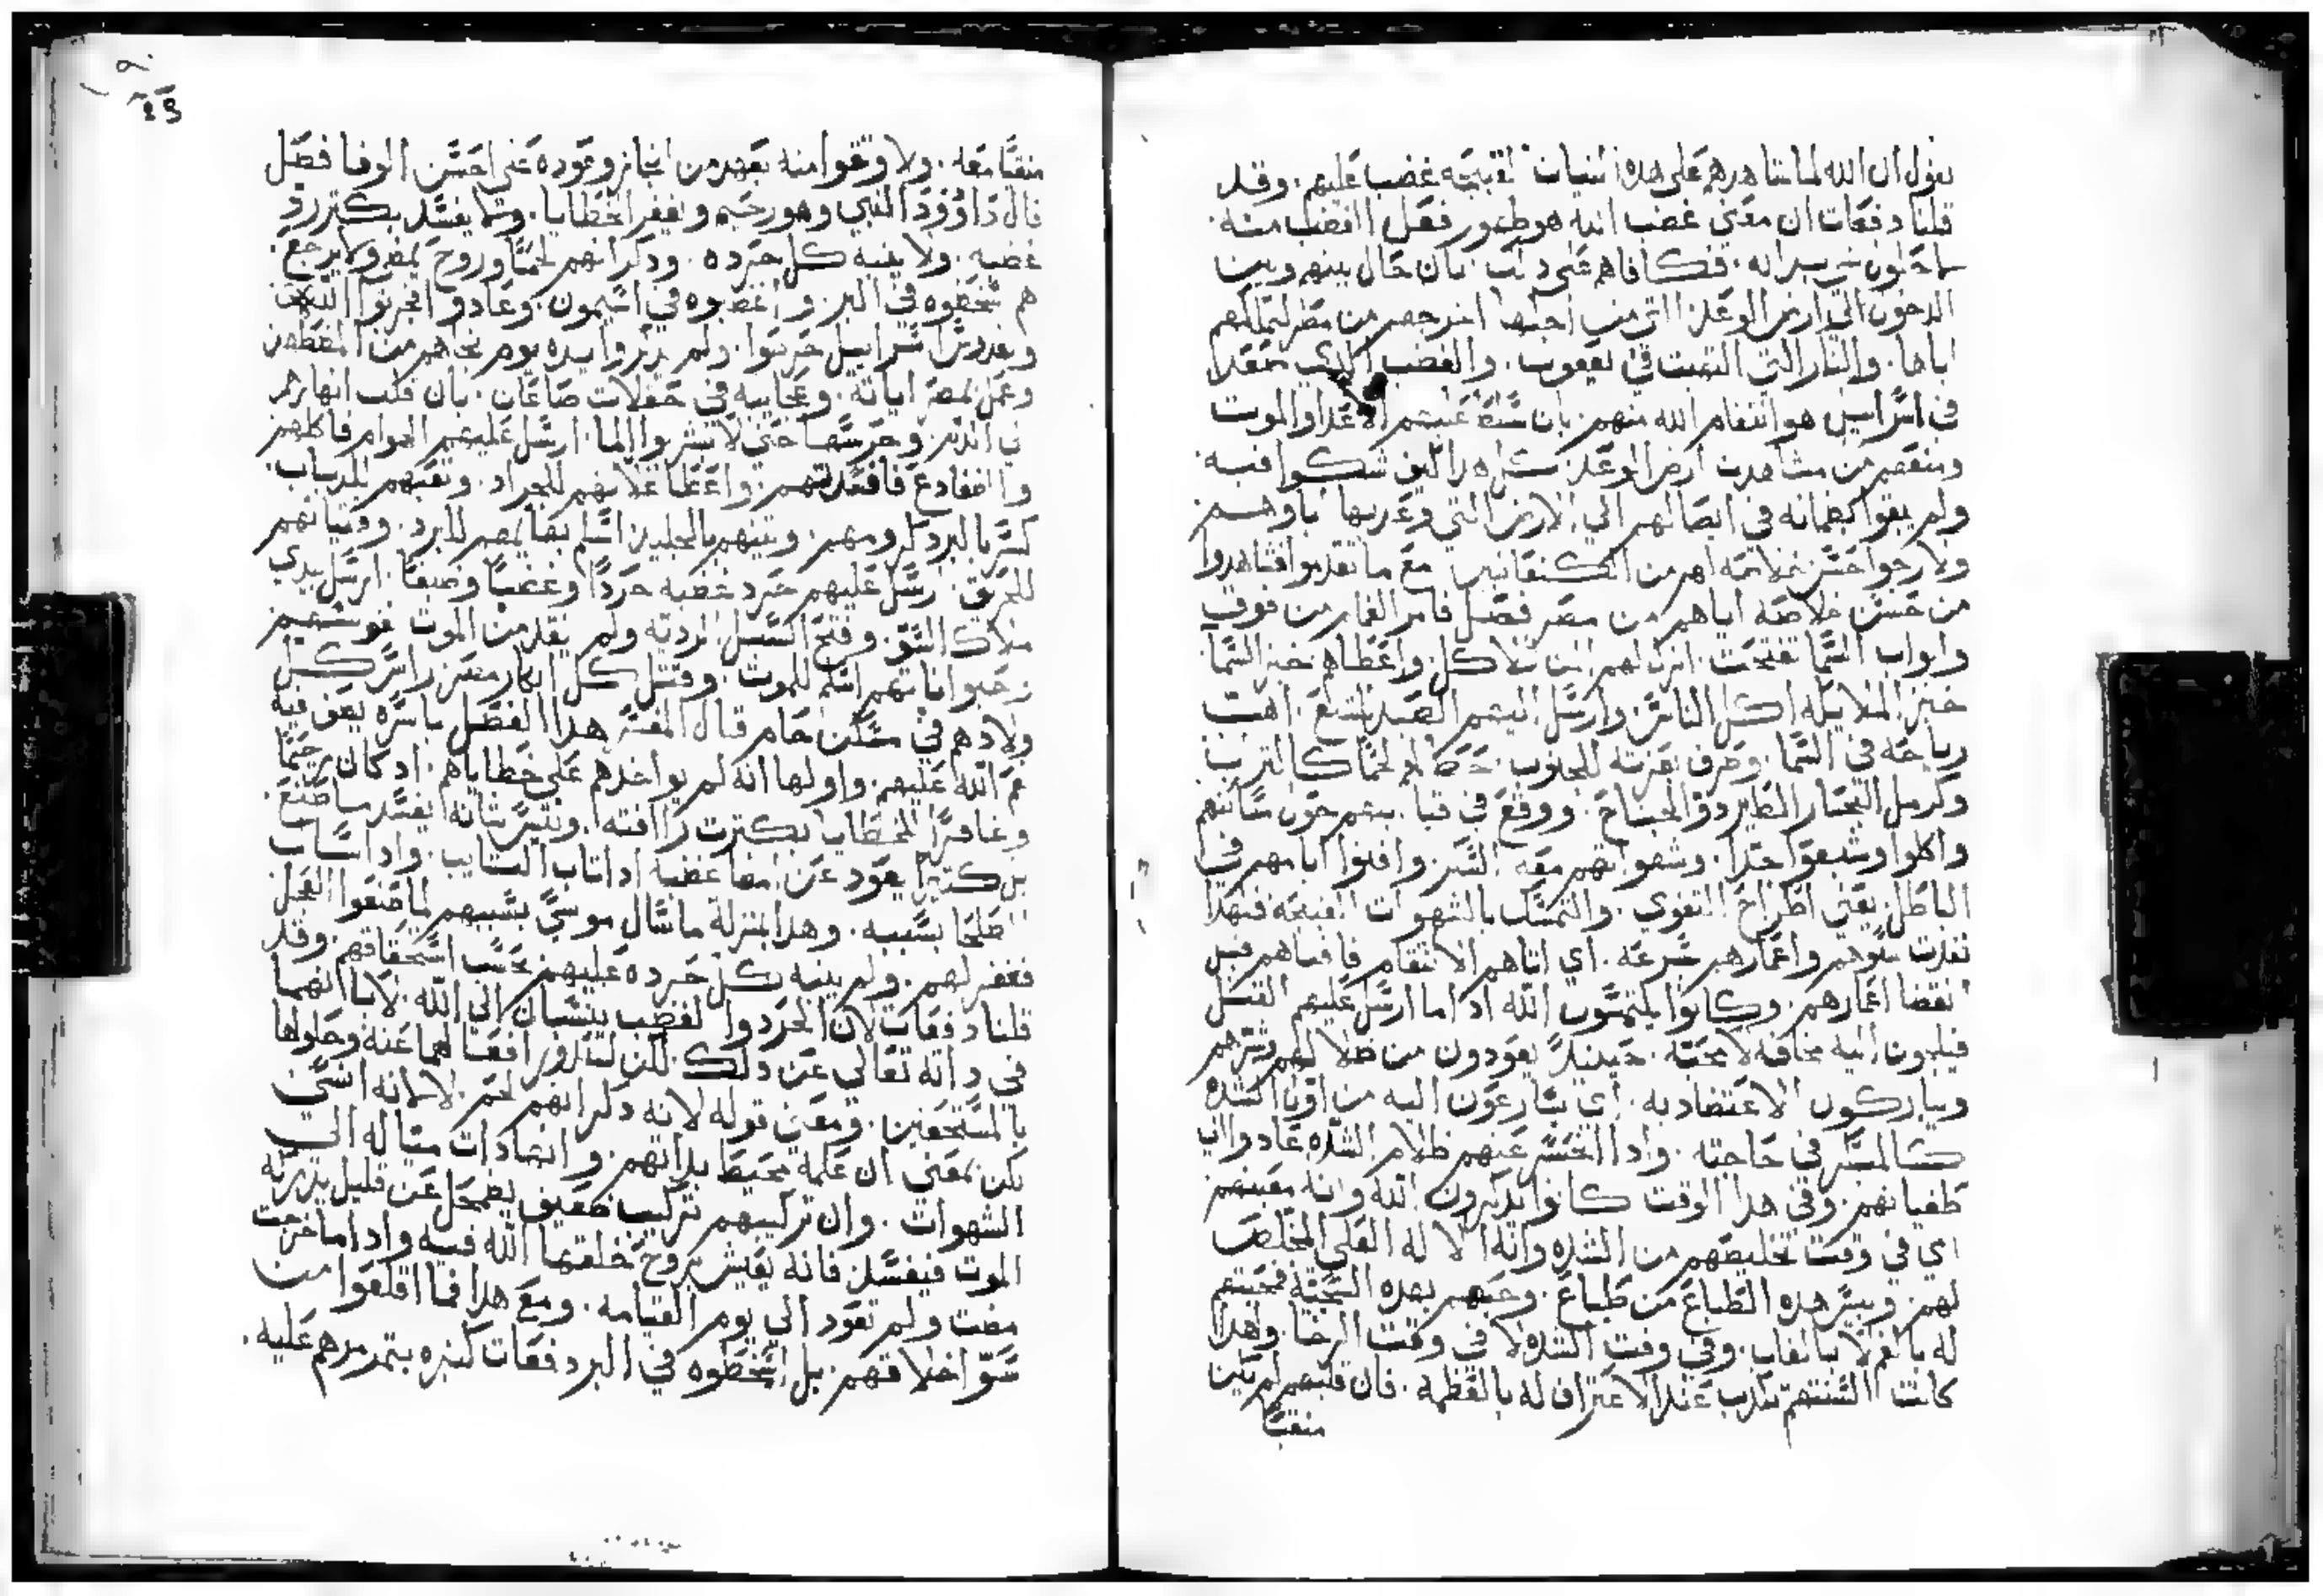 يقول ان الله لما شاهدهم على هذه النيات القبيحه غضب عليهم. وقد
قلنا دفعات ان معنى غضب الله هو ظهور فعل الغضب منه
فكافاهم على ذلك بان حال بينهم وبين
الدخول الي ارض الوعد التي من اجلها اخرجهم من مصر ليملكهم
اياها. والنار التي التهبت في يعقوب. والغضب الذي صعد
في اسراييل هو انتقام الله منهم. بان سلط عليهم الاعدا والموت
ومنعهم من مشاهدت ارض الوعد. كل هدا لانهم شكوا فيه.
ولم يقوا في ايصالهم الي الارض التي وعد بها اباوهم
ولا رجوا حسن خلاصه اهم من الكنعانيين مع ما تقدموا فشاهدوا
من حسن خلاصه اياهم من مصر فصل فامر الغمام من فوق
وابواب السما فتحت. انزل لهم المن للاكل. واعطاهم خبز السما.
خبز الملايكه اكل الناس وارسل اليهم الصيد للشبع. اهب
رياحه في السما. وطرف بعزته للجنوب. حط لحما كالتراب
وكرمل البحار الطاير دو الجناح. ووقع في قبابهم حول مساكنهم
واكلوا وشبعوا جدا. وشهواتهم معه الشر. وافنوا ايامهم في
الباطل. يعني اطراح التقوي. والتمسك بالشهوات القبيحه فلهدا
نفدت سنوهم واعمارهم بسرعه. اي اتاهم الانتقام فافناهم قبل
انقضا اعمارهم. وكانوا يلتمسون الله ادا ما ارسل عليهم القتل
فيلجون اليه مخافه لا محبه. حينيد يعودون من ضلالهم وشرهم
ويباركون الاعتضاد به. اي يتسارعون اليه من اويل الشده
كالمبكر في حاجته. وادا انحسر عنهم ظلام الشده عادوا الي
طغيانهم. وفي هدا الوقت كانوا يدكرون الله وانه معينهم
اي في وقت تخليصهم من الشده وانه الاله العلي المخلص
لهم. وبيس هده الطباع من طباع. وحبهم بهده السجيه فمحبتهم
له بالفم لا بالقلب. وفي وقت الشده لا في وقت الرخا. وهدا
كانت السنتهم تكدب عند الاعتراف له بالعظمه. فان قلبهم لم يكن
منقيا
منقيا معه. ولا وثقوا منه بعهد من انجاز وعوده على احسن الوفا فصل
قال داوود النبي وهو رحيم ويغفر الخطايا. ولا يفسد بكتر رد
غضبه. ولا ينبه كل حرده. ودكر انهم لحما وروح يمضي ولا يرجع.
هم سخطوه في البر. واغضبوه في اشيمون. وعادو اجربوا الله
وبقدوس اسراييل حربوا. ولم يدكروا يده يوم نجاهم من المضطهد
وعمل بمصر اياته. وعجايبه في حقلات صاعان. بان قلب انهارهم
الي الدم. وحرسها حتى لا يشربوا الما. ارسل عليهم الهوام فاكلهم
والضفادع فافسدتهم. واعطا غلاتهم للجراد. وتعبهم للدباب.
كسر بالبرد كرومهم. وتينهم بالجليد. اسلم بهايمهم للبرد. وقنيانهم
للحريق. ارسل عليهم حرد غضبه حردا وغضبا وضيقا. ارسل بيدي
ملاك السوّ. وفتح السبل الرديه ولم ينقد من الموت نفوسهم
وحيواناتهم اسلم للموت. وقتل كل ابكار مصر راس كل
ولادهم في مسكن حام قال المفسر هدا الفصل باسره يعرف فيه
نعم الله عليهم. واولها انه لم يواخدهم على خطاياهم. اد كان رحيما
وغافرا للخطايا بكترت رافته. وليس شانه يفسد ما صنع.
بل كثيرا يعود عن امضا غضبه اد اتاب التايب. وادا سال
الصلحا بسببه. وهدا بمنزله ما سال موسى بسببهم لما صنعوا العجل
فغفر لهم. ولم ينبه كل حرده عليهم بحسب استحقاقهم. وقد
قلنا دفعات لان الحرد والغضب ينسبان الي الله. لا بانهما
في داته تعالي عن دلك. لكن لصدور افعالهما عنه وحلولها
بالمستحقين. ومعنى قوله لانه دكر انهم لحم. لا لانه انسي
لكن بمعنى ان علمه محيط بداتهم. وانهادات مياله الي
الشهوات. وان تركيبهم تركيب ضعيف يضمحل عن قليل يدركه
الموت فيفسد. فانه يعيش بروح خلقها الله فيه وادا ما خرجت
مضت ولم تعود الي يوم القيامه. ومع هدا فما اقلعوا من
سوّ اخلاقهم. بل اسخطوه في البر دفعات كثيره بتمردهم عليه.